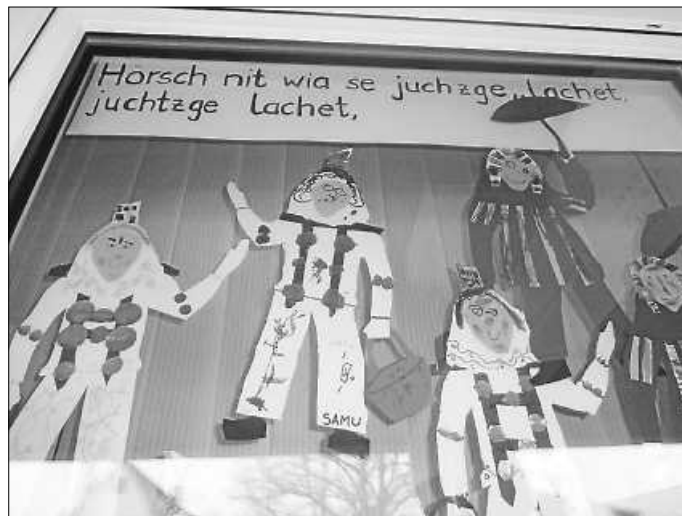 Hörsch nit wia se juchzge,, lachet,
juchtzge lachet,
SAMU